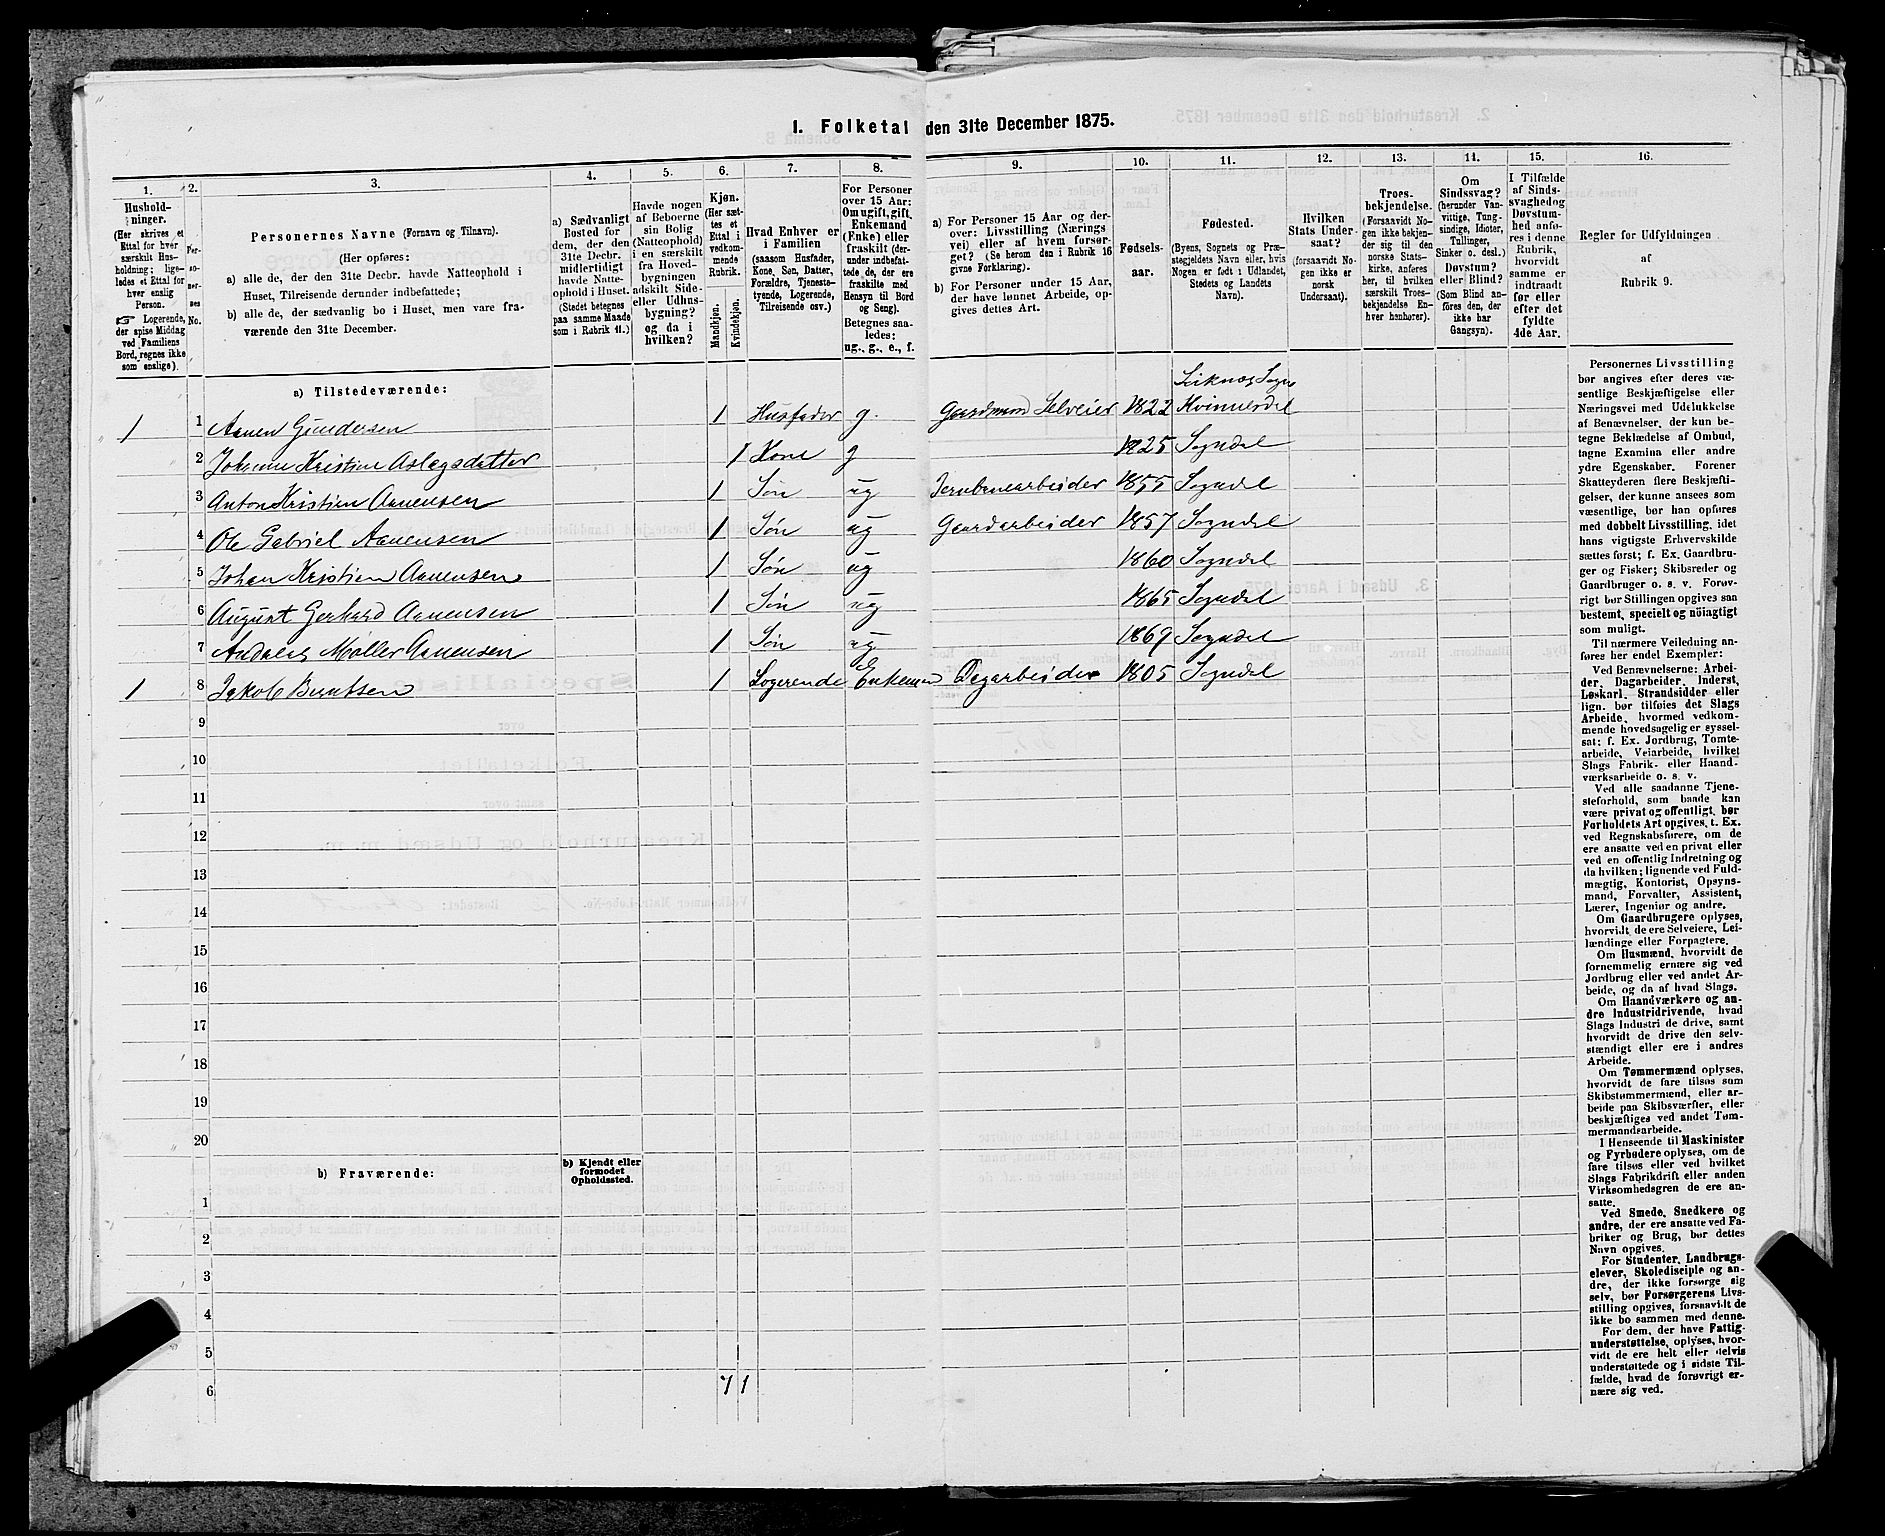 1. Folketal den 31te December 1875.
1.
2.
3.
4.
5.
6.
7.
8.
9.
10.
11.
12.
13.
14.
15.
16.
Hushold-
ninger.
(Her skrives et
Ettal for hver
særskilt Hus-
holdning; lige-
ledes et Ettal for
hver enslig
Person.
☞ Logerende,
der spise Middag
ved Familiens
Bord, regnes ikke
som enslige).
Per-
so-
ner-
nes
No.
Personernes Navne (Fornavn og Tilnavn).
(Her opføres:
a) alle de, der den 31te Decbr. havde Natteophold i
Huset, Tilreisende derunder indbefattede;
b) alle de, der sædvanlig bo i Huset, men vare fra-
værende den 31te December.
a) Sædvanligt
Bosted for
dem, der den
31te Decbr.
midlertidigt
havde Natte-
ophold i Huset.
(Stedet betegnes
paa samme Maade
som i Rubrik 11.)
Havde nogen
af Beboerne
sin Bolig
(Natteophold)
i en særskilt
fra Hoved-
bygningen
adskilt Side-
eller Udhus-
bygning?
og da i
hvilken?
Kjøn.
(Her sæt-
tes et
Ettal i
vedkom-
mende
Rubrik.
Mandkjøn.
Kvindekjøn.
Hvad Enhver er
i Familien
(saasom Husfader,
Kone, Søn, Datter,
Forældre, Tjeneste-
tyende, Logerende,
Tilreisende osv.)
For Personer
over 15 Aar:
Om ugift, gift,
Enkemand
(Enke) eller
fraskilt (der-
under indbefat-
tede de, der ere
fraskilte med
Hensyn til Bord
og Seng).
Betegnes saa-
ledes:
ug., g., e., f.
a) For Personer 15 Aar og der-
over: Livsstilling (Nærings
vei) eller af hvem forsør-
get? (Se herom den i Rubrik 16
givne Forklaring).
b) For Personer under 15 Aar,
der have lønnet Arbeide, op-
gives dettes Art.
Fødsels-
aar.
Fødested.
(Byens, Sognets og Præ-
stegjeldets Navn eller, hvis
Nogen er født i Udlandet,
Stedets og Landets
Navn).
Hvilken
Stats Under-
saat?
(forsaavidt No-
gen ikke er
norsk
Undersaat).
Troes-
bekjendelse.
(Forsaavidt No-
gen ikke bekjen-
der sig til den
norske Stats-
kirke, anføres
her, til hvilken
særskilt Troes-
bekjendelse En-
hver henhører).
Om
Sindssvag?
(herunder Van-
vittige, Tung-
sindige, Idioter,
Tullinger,
Sinker o. desl.)
Døvstum?
eller Blind?
(Som Blind an-
føres den, der
ikke har
Gangsyn).
I Tilfælde
af Sinds-
svaghed og
Døvstum-
hed anfø-
res i denne
Rubrik,
hvorvidt
samme er
indtraadt
før eller
efter det
fyldte
4de Aar.
Regler for Udfyldningen
af
Rubrik 9.
a) Tilstedeværende:
Sogn
1 1 Aanen Gundersen 1 Husfader g. Gaardmand Selveier 1822 Kvinnesdal
2 Johanne Kristine Aslagsdatter 1 Kone g 1825 Sogndal
3 Anton Kristian Aanensen 1 Søn ug Jernbanearbeider 1855 Sogndal
4 Ole Gabriel Aanensen 1 Søn ug Gaardarbeider 1857 Sogndal
5 Johan Kristian Aanensen 1 Søn ug 1860 Sogndal
6 August Gerhard Aanensen 1 Søn ug 1865 Sogndal
7 Andreas Møller Aanensen 1 Søn ug 1869 Sogndal
1 8 Jakob Berntsen 1 Logerende Enkeman Dagarbeider 1805 Sogndal
9
10
11
12
13
14
15
16
17
18
19
20
b) Fraværende:
b) Kjendt eller
formodet
Opholdssted.
1
2
3
4
5
6
7 1
Personernes Livsstilling
bør angives efter deres væ-
sentlige Beskjæftigelse eller
Næringsvei med Udelukkelse
af Benævnelser, der kun be-
tegne Beklædelse af Ombud,
tagne Examina eller andre
ydre Egenskaber. Forener
Skatteyderen flere Beskjæfti-
gelser, der kunne ansees som
væsentlige, bør han opføres
med dobbelt Livsstilling, idet
hans vigtigste Erhvervskilde
sættes først; f. Ex. Gaardbru-
ger og Fisker; Skibsreder og
Gaardbruger o. s. v. Forøv-
rigt bør Stillingen opgives saa
bestemt, specielt og nöiagtigt
som muligt.
Til nærmere Veiledning an-
føres her endel Exempler:
Ved Benævnelserne: Arbei-
der, Dagarbeider, Inderst,
Løskarl, Strandsidder eller
lign. bør tilføies det Slags
Arbeide, hvormed vedkom-
mende hovedsagelig er syssel-
sat; f. Ex. Jordbrug, Tomte-
arbeide, Veiarbeide, hvilket
Slags Fabrik- eller Haand-
værksarbeide o. s. v.
Ved alle saadanne Tjene-
steforhold, som baade kan
være privat og offentligt, bør
Forholdets Art opgives, t. Ex.
ved Regnskabsførere, om de
ere ansatte ved en privat eller
ved en offentlig Indretning og
da hvilken; lignende ved Fuld-
mægtig, Kontorist, Opsyns-
mand, Forvalter, Assistent,
Lærer, Ingeniør og andre.
Om Gaardbrugere oplyses,
hvorvidt de ere Selveiere, Lei-
lændinge eller Forpagtere.
Om Husmænd, hvorvidt de
fornemmelig ernære sig ved
Jordbrug eller ved andet Ar-
beide, og da af hvad Slags.
Om Haandværkere og an-
dre Industridrivende, hvad
Slags Industri de drive, samt
hvorvidt de drive den selv-
stændigt eller ere i andres
Arbeide.
Om Tømmermænd oplyses,
hvorvidt de fare tilsøs som
Skibstømmermænd, eller ar-
beide paa Skibsværfter, eller
beskjæftiges ved andet Tøm-
mermandsarbeide.
I Henseende til Maskinister
og Fyrbødere oplyses, om de
fare tilsøs eller ved hvilket
Slags Fabrikdrift eller anden
Virksomhedsgren de ere an-
satte.
Ved Smede, Snedkere og
andre, der ere ansatte ved Fa-
briker og Brug, bør dettes
Navn opgives.
For Studenter, Landbrugs-
elever, Skoledisciple og an-
dre, der ikke forsørge sig
selv, bør Forsørgerens Livs-
stilling opgives, forsaavidt de
ikke bo sammen med denne.
For dem, der have Fattig-
understøttelse, oplyses, hvor-
vidt de ere helt eller delvis
understøttede og i sidste Til-
fælde, hvad de forøvrigt er-
nære sig ved.